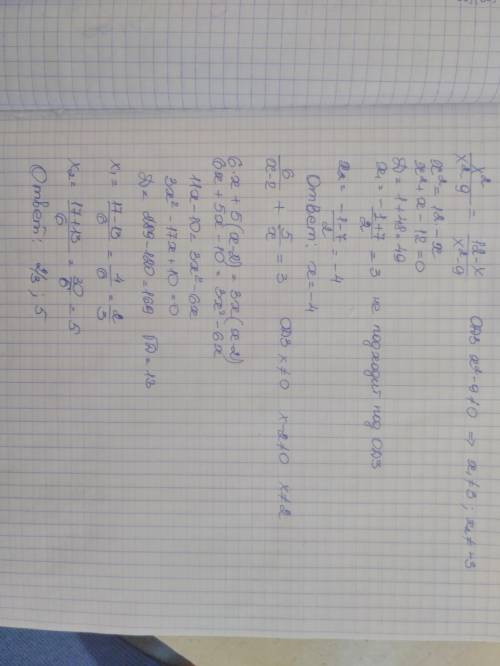 x²/(x²-9) = (12-x)/(x²-9) ОДЗ x²-9≠0 ⇒ x₁≠3; x₂≠-3
x² = 12-x
x²+x-12=0
D=1+48=49
x₁ = (-1+7)/2 = 3 не подходит под ОДЗ
x₂ = (-1-7)/2 = -4
Ответ: x=-4
6/(x-2) + 5/x = 3 ОДЗ x≠0 x-2≠0 x≠2
6·x+5(x-2)=3x(x-2)
6x+5x-10=3x²-6x
11x-10=3x²-6x
3x²-17x+10=0
D=289-120=169 √D=13
x₁ = (17-13)/6 = 4/6 = 2/3
x₂ = (17+13)/6 = 30/6 = 5
Ответ: 2/3; 5